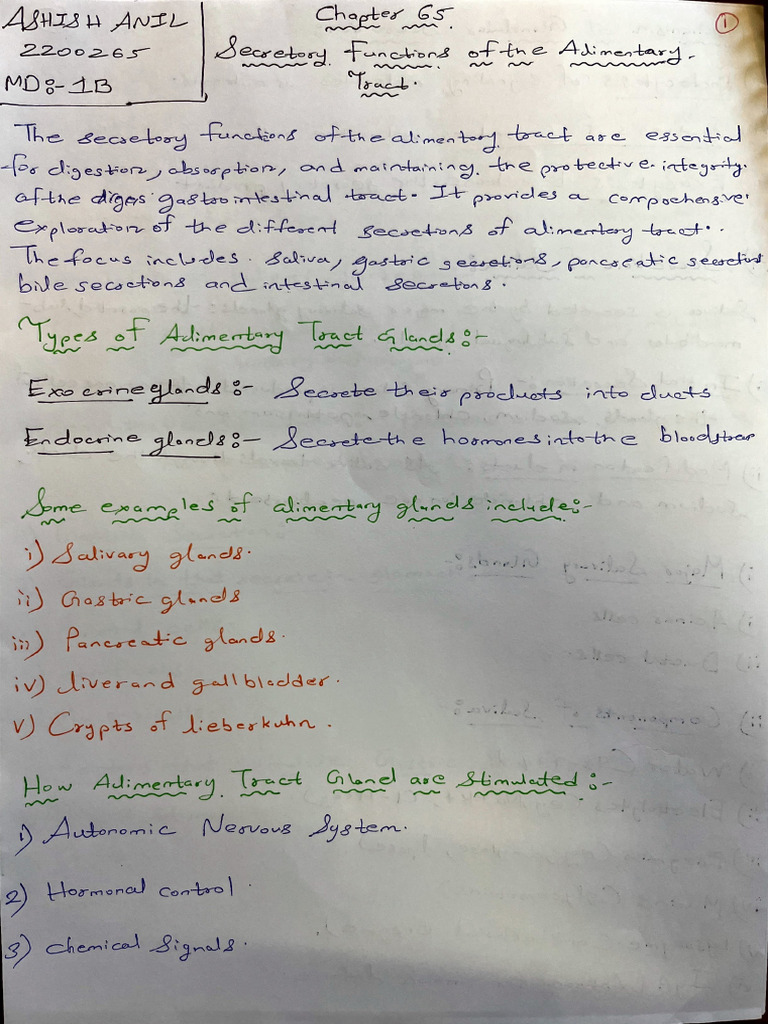 ASHISH ANIL
2200265
MD:- 1B
Chapter 65.
1
Secretory Functions of the Alimentary
Tract.
The secretory functions of the alimentory tract are essential
for digestion, absorption, and maintaining the protective integrity.
of the digas gastrointestinal tract. It provides a comprehensive
exploration of the different secretions of alimentory tract.
The focus includes saliva, gastric secretions, pancreatic secretions
bile secretions and intestinal secretions.
Types of Alimentary Tract Glands:-
Exocrine glands:- Secrete their products into ducts
Endocrine glands:- Secrete the hormones into the bloodstream
Some examples of alimentary glands include:-
i) Salivary glands.
ii) Gastric glands
iii) Pancreatic glands.
iv) liver and gallbladder.
v) Crypts of lieberkuhn.
How Alimentary Tract Gland are Stimulated:-
1) Autonomic Nervous System.
2) Hormonal control.
3) Chemical Signals.